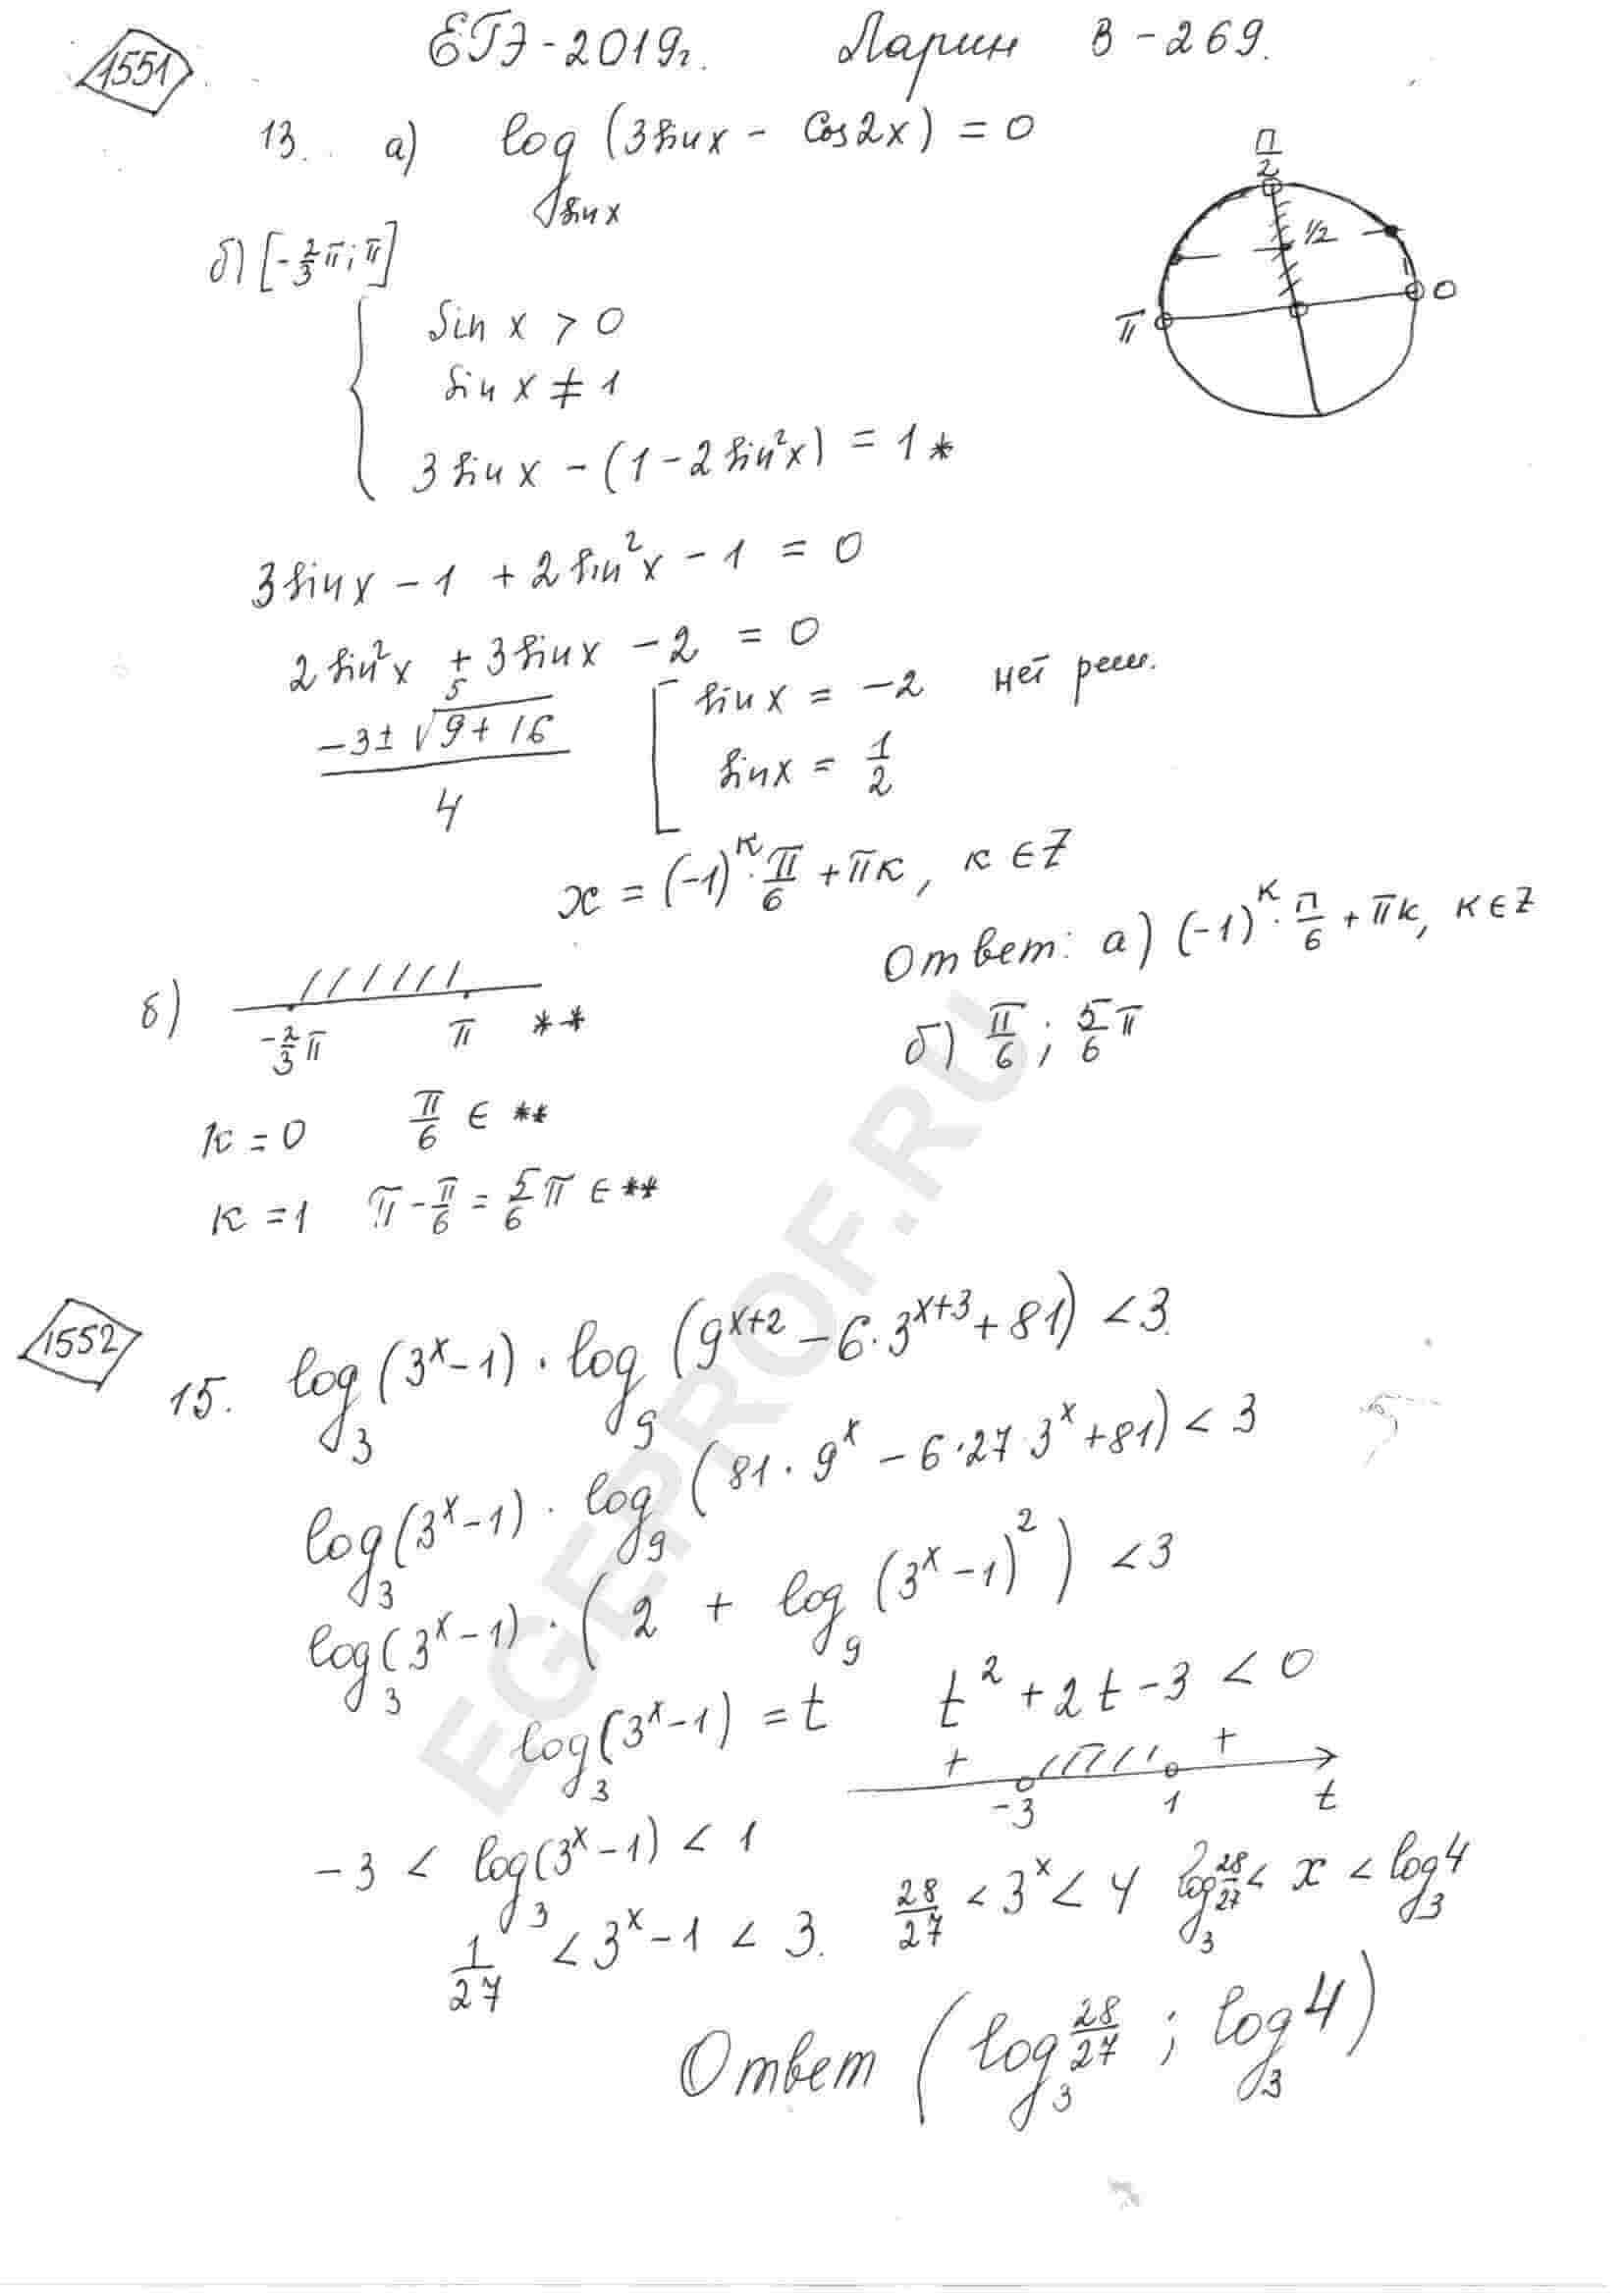 1551
ЕГЭ-2019г. Ларин В-269.
13. а) log_{sin x} (3sin x - cos2x) = 0
б) [-2/3 π; π]
π/2
1/2
π 0
sin x > 0
sin x ≠ 1
3 sin x - (1 - 2 sin²x) = 1 *
3 sin x - 1 + 2 sin²x - 1 = 0
2 sin²x + 3 sin x - 2 = 0
5
(-3 ± √(9 + 16)) / 4
sin x = -2 нет реш.
sin x = 1/2
x = (-1)^к · π/6 + πк, к ∈ Z
Ответ: а) (-1)^к · π/6 + πк, к ∈ Z
б) π/6 ; 5/6 π
б) -2/3 π π **
к = 0 π/6 ∈ **
к = 1 π - π/6 = 5/6 π ∈ **
1552
15. log_3 (3^x - 1) · log_9 (9^{x+2} - 6 · 3^{x+3} + 81) < 3.
log_3 (3^x - 1) · log_9 (81 · 9^x - 6 · 27 · 3^x + 81) < 3
log_3 (3^x - 1) · (2 + log_9 (3^x - 1)^2) < 3
log_3 (3^x - 1) = t t² + 2t - 3 < 0
+ +
-3 1 t
-3 < log_3 (3^x - 1) < 1
1/27 < 3^x - 1 < 3. 28/27 < 3^x < 4 log_3 28/27 < x < log_3 4
Ответ (log_3 28/27 ; log_3 4)
EGEPROF.RU